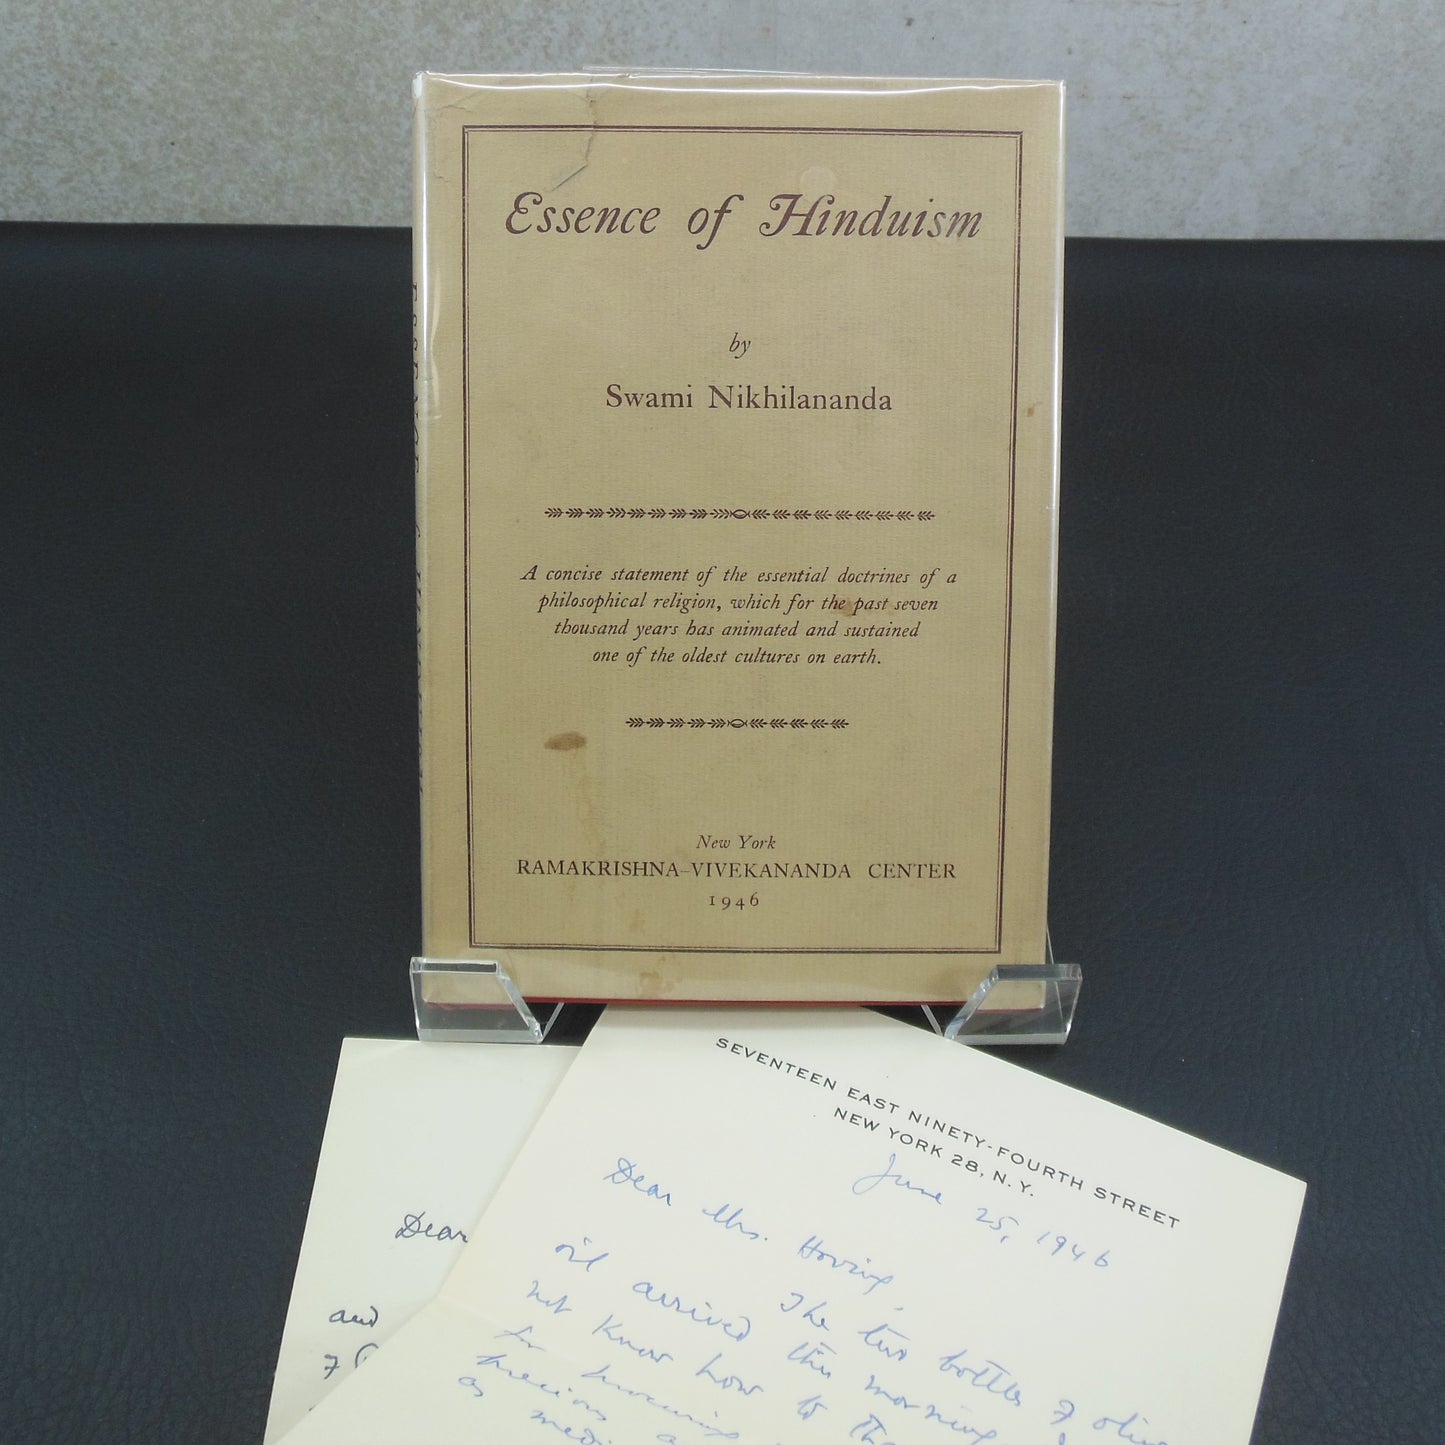 Essence of Hinduism
by
Swami Nikhilananda
A concise statement of the essential doctrines of a
philosophical religion, which for the past seven
thousand years has animated and sustained
one of the oldest cultures on earth.
New York
RAMAKRISHNA–VIVEKANANDA CENTER
1946
SEVENTEEN EAST NINETY-FOURTH STREET
NEW YORK 28, N. Y.
June 25, 1946
Dear Mrs. Hoving,
The two bottles of olive
oil arrived this morning
not know how to
for procuring
precious
as
Dear
and